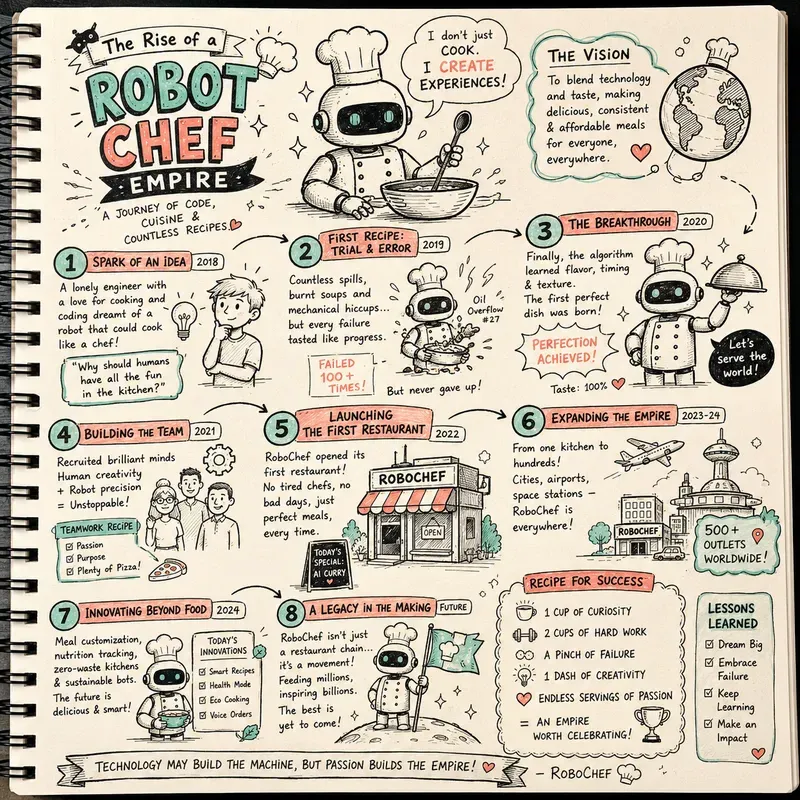 The Rise of a
ROBOT
CHEF
EMPIRE
A JOURNEY OF CODE,
CUISINE &
COUNTLESS RECIPES
I don't just
COOK.
I CREATE
EXPERIENCES!
THE VISION
To blend technology
and taste, making
delicious, consistent
& affordable meals
for everyone,
everywhere.
1 SPARK OF AN IDEA 2018
A lonely engineer with
a love for cooking and
coding dreamt of a
robot that could cook
like a chef!
"Why should humans
have all the fun
in the kitchen?"
2 FIRST RECIPE:
TRIAL & ERROR 2019
Countless spills,
burnt soups and
mechanical hiccups...
but every failure
tasted like progress.
Oil
Overflow
#27
FAILED
100+
TIMES!
But never gave up!
3 THE BREAKTHROUGH 2020
Finally, the algorithm
learned flavor, timing
& texture.
The first perfect
dish was born!
PERFECTION
ACHIEVED!
Taste: 100%
Let's
serve the
world!
4 BUILDING THE TEAM 2021
Recruited brilliant minds
Human creativity
+ Robot precision
= Unstoppable!
TEAMWORK RECIPE
Passion
Purpose
Plenty of Pizza!
5 LAUNCHING
THE FIRST RESTAURANT 2022
RoboChef opened its
first restaurant!
No tired chefs, no
bad days, just
perfect meals,
every time.
ROBOCHEF
OPEN
TODAY'S
SPECIAL:
AI CURRY
6 EXPANDING THE EMPIRE 2023-24
From one kitchen to
hundreds!
Cities, airports,
space stations –
RoboChef is
everywhere!
ROBOCHEF
500+
OUTLETS
WORLDWIDE!
7 INNOVATING BEYOND FOOD 2024
Meal customization,
nutrition tracking,
zero-waste kitchens
& sustainable bots.
The future is
delicious & smart!
TODAY'S
INNOVATIONS
Smart Recipes
Health Mode
Eco Cooking
Voice Orders
8 A LEGACY IN THE MAKING FUTURE
RoboChef isn't just
a restaurant chain...
it's a movement!
Feeding millions,
inspiring billions.
The best is
yet to come!
RECIPE FOR SUCCESS
1 CUP OF CURIOSITY
2 CUPS OF HARD WORK
A PINCH OF FAILURE
1 DASH OF CREATIVITY
ENDLESS SERVINGS OF PASSION
= AN EMPIRE
WORTH CELEBRATING!
LESSONS
LEARNED
Dream Big
Embrace
Failure
Keep
Learning
Make an
Impact
TECHNOLOGY MAY BUILD THE MACHINE, BUT PASSION BUILDS THE EMPIRE!
– ROBOCHEF